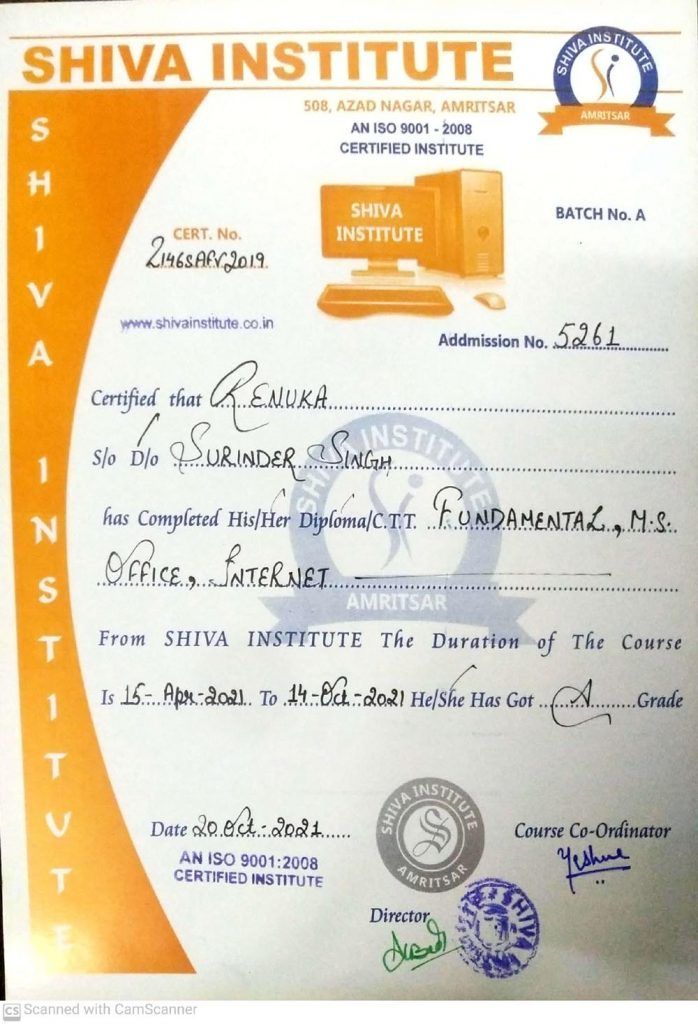 SHIVA INSTITUTE
SHIVA INSTITUTE
AMRITSAR
508, AZAD NAGAR, AMRITSAR
AN ISO 9001 - 2008
CERTIFIED INSTITUTE
SHIVA INSTITUTE
SHIVA
INSTITUTE
BATCH No. A
CERT. No.
www.shivainstitute.co.in
Addmission No. 5261
Certified that RENUKA
S/o D/o SURINDER SINGH
has Completed His/Her Diploma/C.T.T. FUNDAMENTAL, M.S.
OFFICE, INTERNET
SHIVA INSTITUTE
AMRITSAR
From SHIVA INSTITUTE The Duration of The Course
Is 15-Apr-2021 To 14-Oct-2021 He/She Has Got A Grade
Date 20 Oct-2021
AN ISO 9001:2008
CERTIFIED INSTITUTE
SHIVA INSTITUTE
S
AMRITSAR
Course Co-Ordinator
Director
SHIVA
CS Scanned with CamScanner